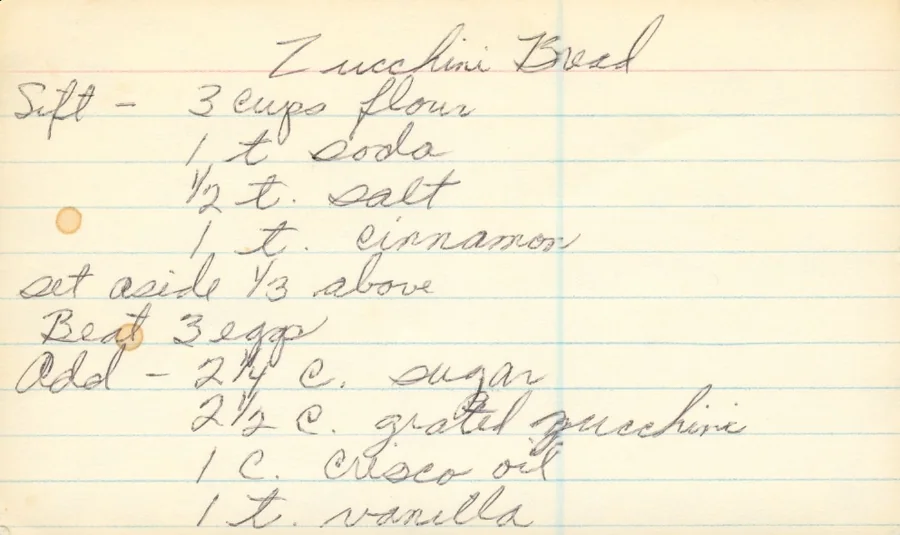 Zucchini Bread
Sift - 3 cups flour
1 t soda
1/2 t. salt
1 t. cinnamon
set aside 1/3 above
Beat 3 eggs
Add - 2 1/4 c. sugar
2 1/2 c. grated zucchini
1 c. Crisco oil
1 t. vanilla